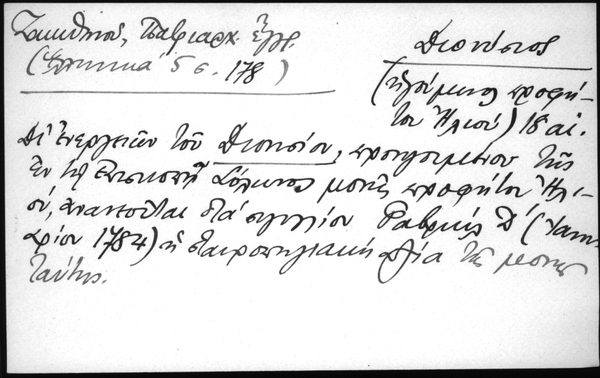 Ζακυθηνοῦ, Πατριαρχ. ἔγγρ.
(Ἑλληνικά 5 σ. 178)
Διονύσιος
(ἡγούμενος προφή-
του Ἠλιού) 18 αἰ.
Δι' ἐνεργειῶν τοῦ Διονυσίου, προηγουμένου τῆς
ἐν τῇ ἐπισκοπῇ μονῆς προφήτου Ἠλι-
ού, ἀνανεοῦται διά σιγιλλίου Γαβριήλ Δ' (Ἰανου-
αρίου 1784) ἡ σταυροπηγιακή ἀξία τῆς μονῆς
ταύτης.